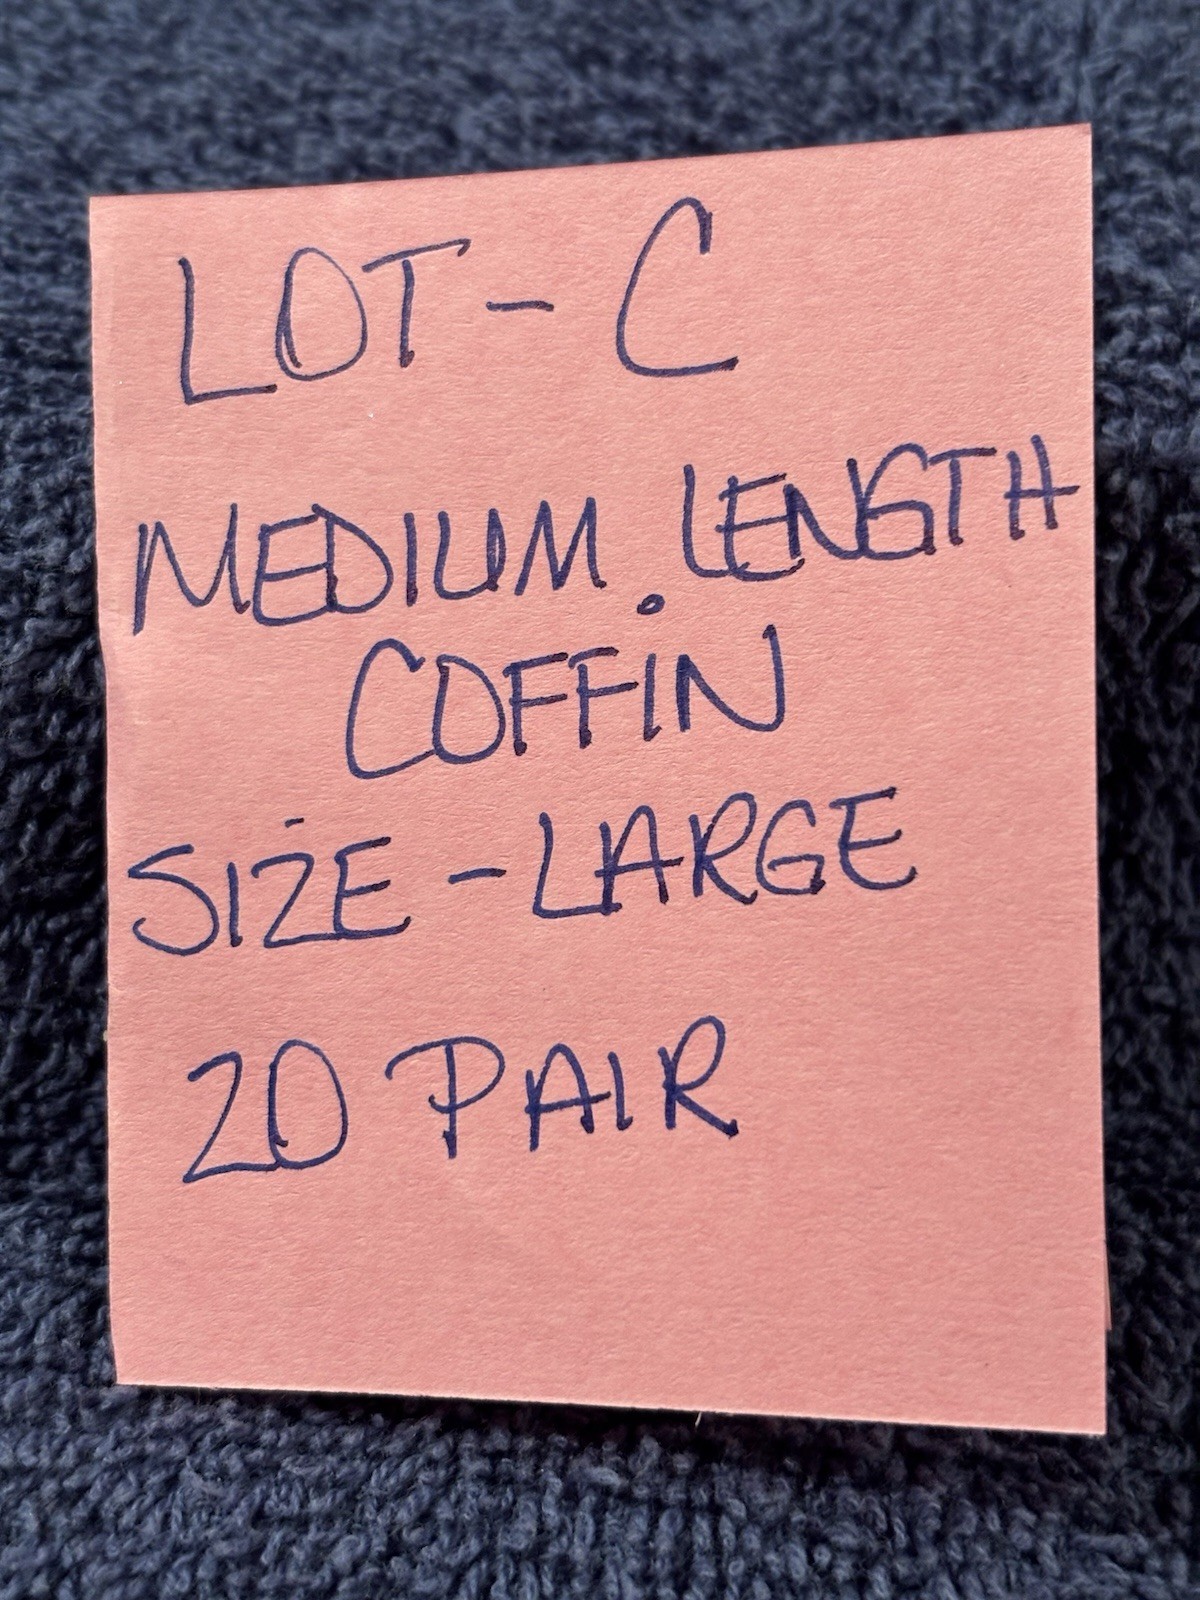 LOT - C
MEDIUM LENGTH
COFFIN
SIZE - LARGE
20 PAIR